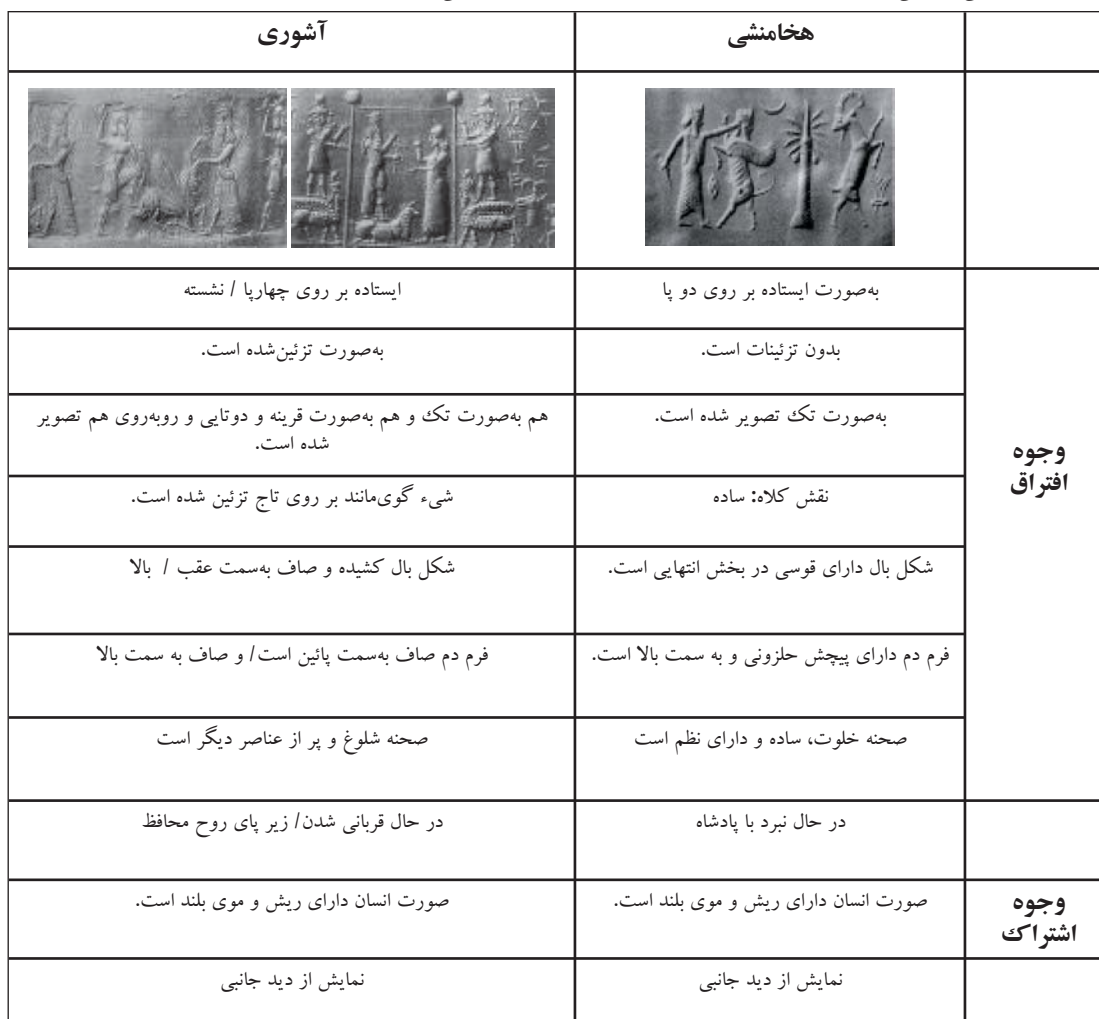 هخامنشی
آشوری
وجوه
افتراق
به‌صورت ایستاده بر روی دو پا
ایستاده بر روی چهارپا / نشسته
بدون تزئینات است.
به‌صورت تزئین‌شده است.
به‌صورت تک تصویر شده است.
هم به‌صورت تک و هم به‌صورت قرینه و دوتایی و روبه‌روی هم تصویر
شده است.
نقش کلاه: ساده
شیء گوی‌مانند بر روی تاج تزئین شده است.
شکل بال دارای قوسی در بخش انتهایی است.
شکل بال کشیده و صاف به‌سمت عقب / بالا
فرم دم دارای پیچش حلزونی و به سمت بالا است.
فرم دم صاف به‌سمت پائین است/ و صاف به سمت بالا
صحنه خلوت، ساده و دارای نظم است
صحنه شلوغ و پر از عناصر دیگر است
در حال نبرد با پادشاه
در حال قربانی شدن/ زیر پای روح محافظ
وجوه
اشتراک
صورت انسان دارای ریش و موی بلند است.
صورت انسان دارای ریش و موی بلند است.
نمایش از دید جانبی
نمایش از دید جانبی